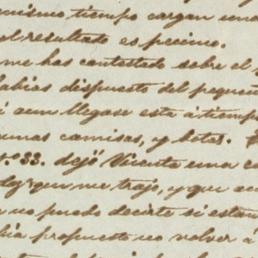 mismo tiempo cargan una
el resultado es pecimo.
me has contestado sobre el
habias dispuesto del pequeñ
si aun llegase esta á tiempo
unas camisas, y botas.
nº 33. dejó Vicenta una c
que me trajo, y que
no puedo decirte si estan
bia propuesto no volver á